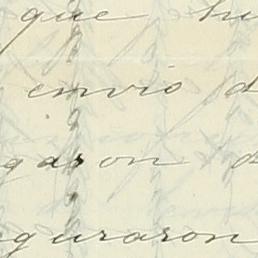 que hu
envió d
garon d
guraron